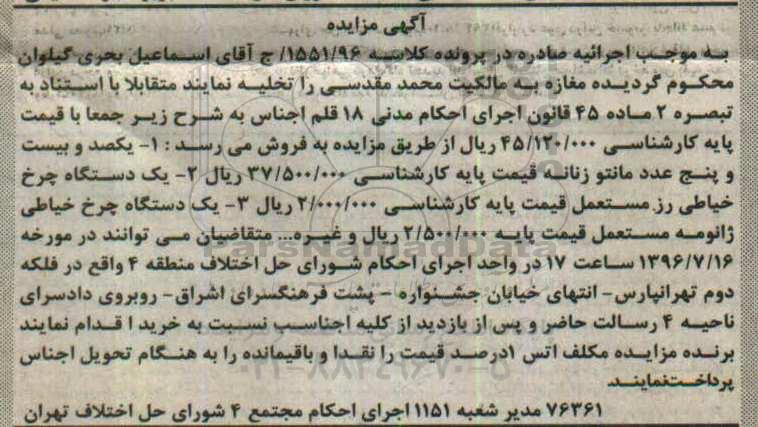 آگهی مزایده
به موجب اجرائیه صادره در پرونده کلاسه ۱۵۵۱/۹۶/ ج آقای اسماعیل بحری گیلوان
محکوم گردیده مغازه به مالکیت محمد مقدسی را تخلیه نمایند متقابلا با استناد به
تبصره ۲ ماده ۴۵ قانون اجرای احکام مدنی ۱۸ قلم اجناس به شرح زیر جمعا با قیمت
پایه کارشناسی ۴۵/۱۲۰/۰۰۰ ریال از طریق مزایده به فروش می رسد : ۱- یکصد و بیست
و پنج عدد مانتو زنانه قیمت پایه کارشناسی ۳۷/۵۰۰/۰۰۰ ریال ۲- یک دستگاه چرخ
خیاطی رز مستعمل قیمت پایه کارشناسی ۲/۰۰۰/۰۰۰ ریال ۳- یک دستگاه چرخ خیاطی
ژانومه مستعمل قیمت پایه ۲/۵۰۰/۰۰۰ ریال و غیره... متقاضیان می توانند در مورخه
۱۳۹۶/۷/۱۶ ساعت ۱۷ در واحد اجرای احکام شورای حل اختلاف منطقه ۴ واقع در فلکه
دوم تهرانپارس- انتهای خیابان جشنواره - پشت فرهنگسرای اشراق- روبروی دادسرای
ناحیه ۴ رسالت حاضر و پس از بازدید از کلیه اجناسب نسبت به خرید ا قدام نمایند
برنده مزایده مکلف اتس ۱درصد قیمت را نقدا و باقیمانده را به هنگام تحویل اجناس
پرداخت‌نمایند.
۷۶۳۶۱ مدیر شعبه ۱۱۵۱ اجرای احکام مجتمع ۴ شورای حل اختلاف تهران
ParsNamadData
۰۲۱-۸۸۳۴۹۶۷۰-۵